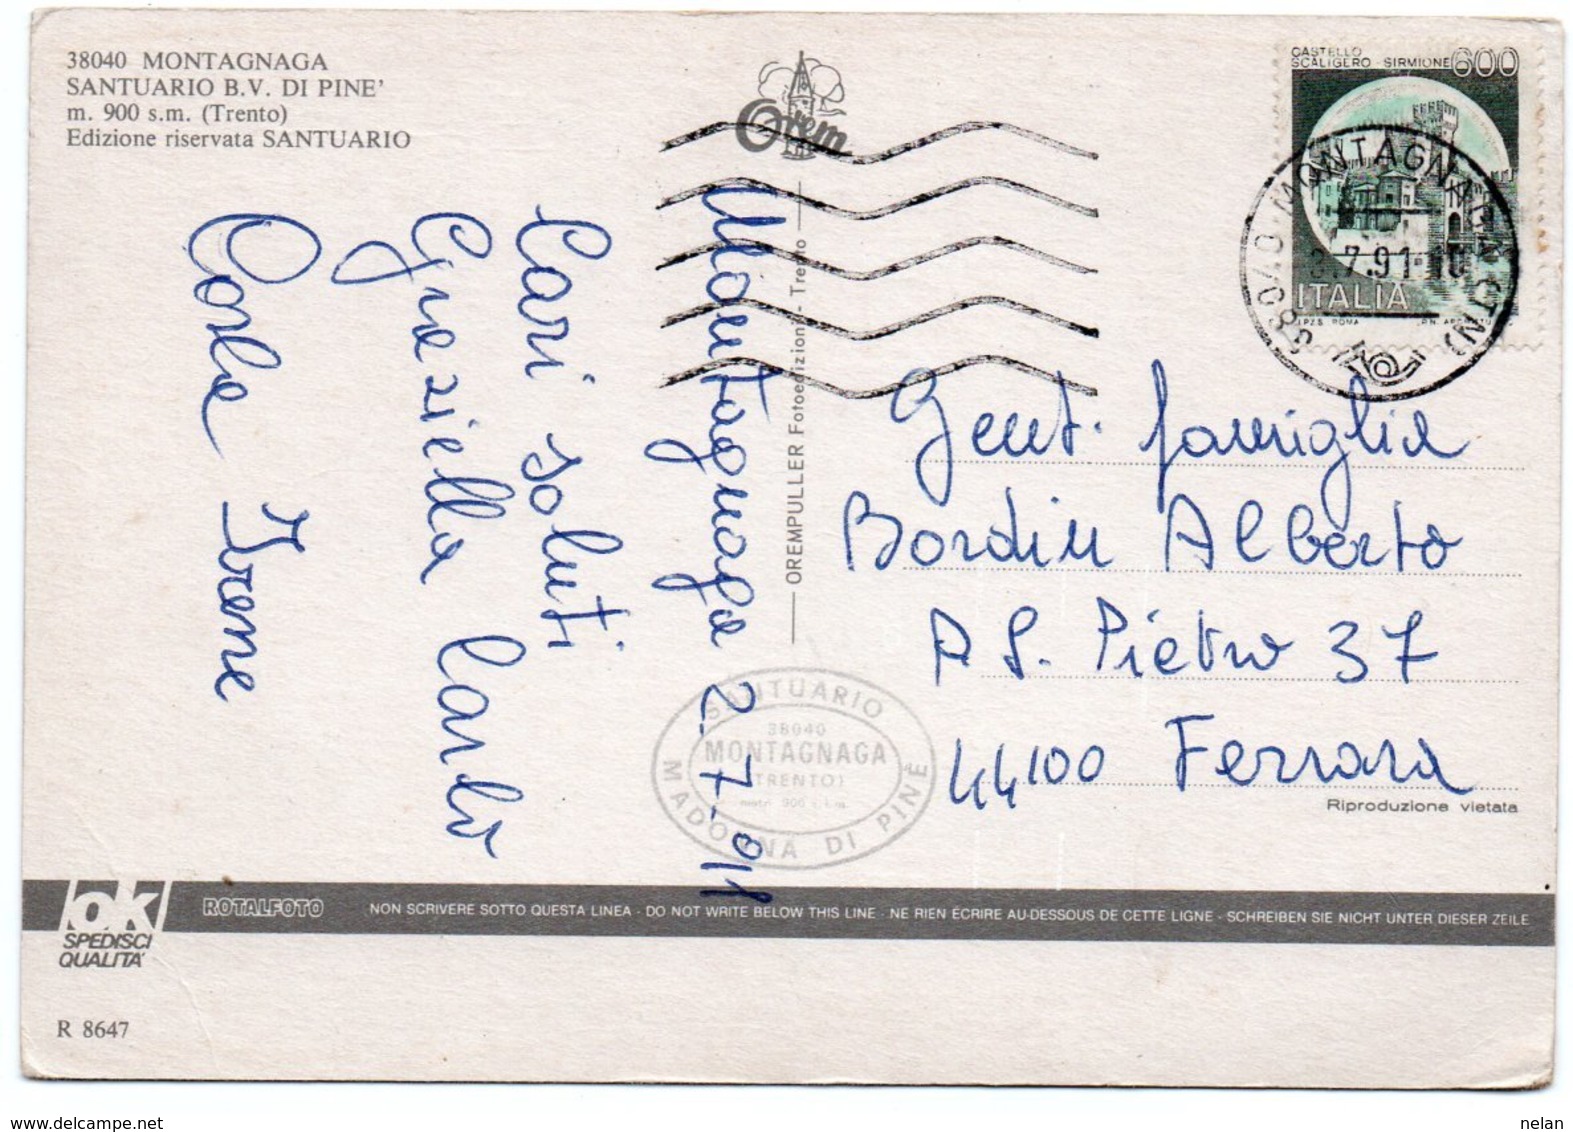 38040 MONTAGNAGA
SANTUARIO B.V. DI PINE'
m. 900 s.m. (Trento)
Edizione riservata SANTUARIO
Orem
CASTELLO
SCALIGERO - SIRMIONE 600
ITALIA
I.P.Z.S. ROMA
38040 MONTAGNAGA (TN)
7.91-10
Montagnaga 2-7-91
Cari saluti
Graziella Carlo
Carla Irene
OREMPULLER Fotoedizioni - Trento
Gent. famiglia
Bordin Alberto
A S. Pietro 37
44100 Ferrara
Riproduzione vietata
SANTUARIO
38040
MONTAGNAGA
(TRENTO)
metri 900 s.l.m.
MADONNA DI PINÈ
ok
SPEDISCI
QUALITA'
ROTALFOTO
NON SCRIVERE SOTTO QUESTA LINEA - DO NOT WRITE BELOW THIS LINE - NE RIEN ÉCRIRE AU-DESSOUS DE CETTE LIGNE - SCHREIBEN SIE NICHT UNTER DIESER ZEILE
R 8647
www.delcampe.net
nelan